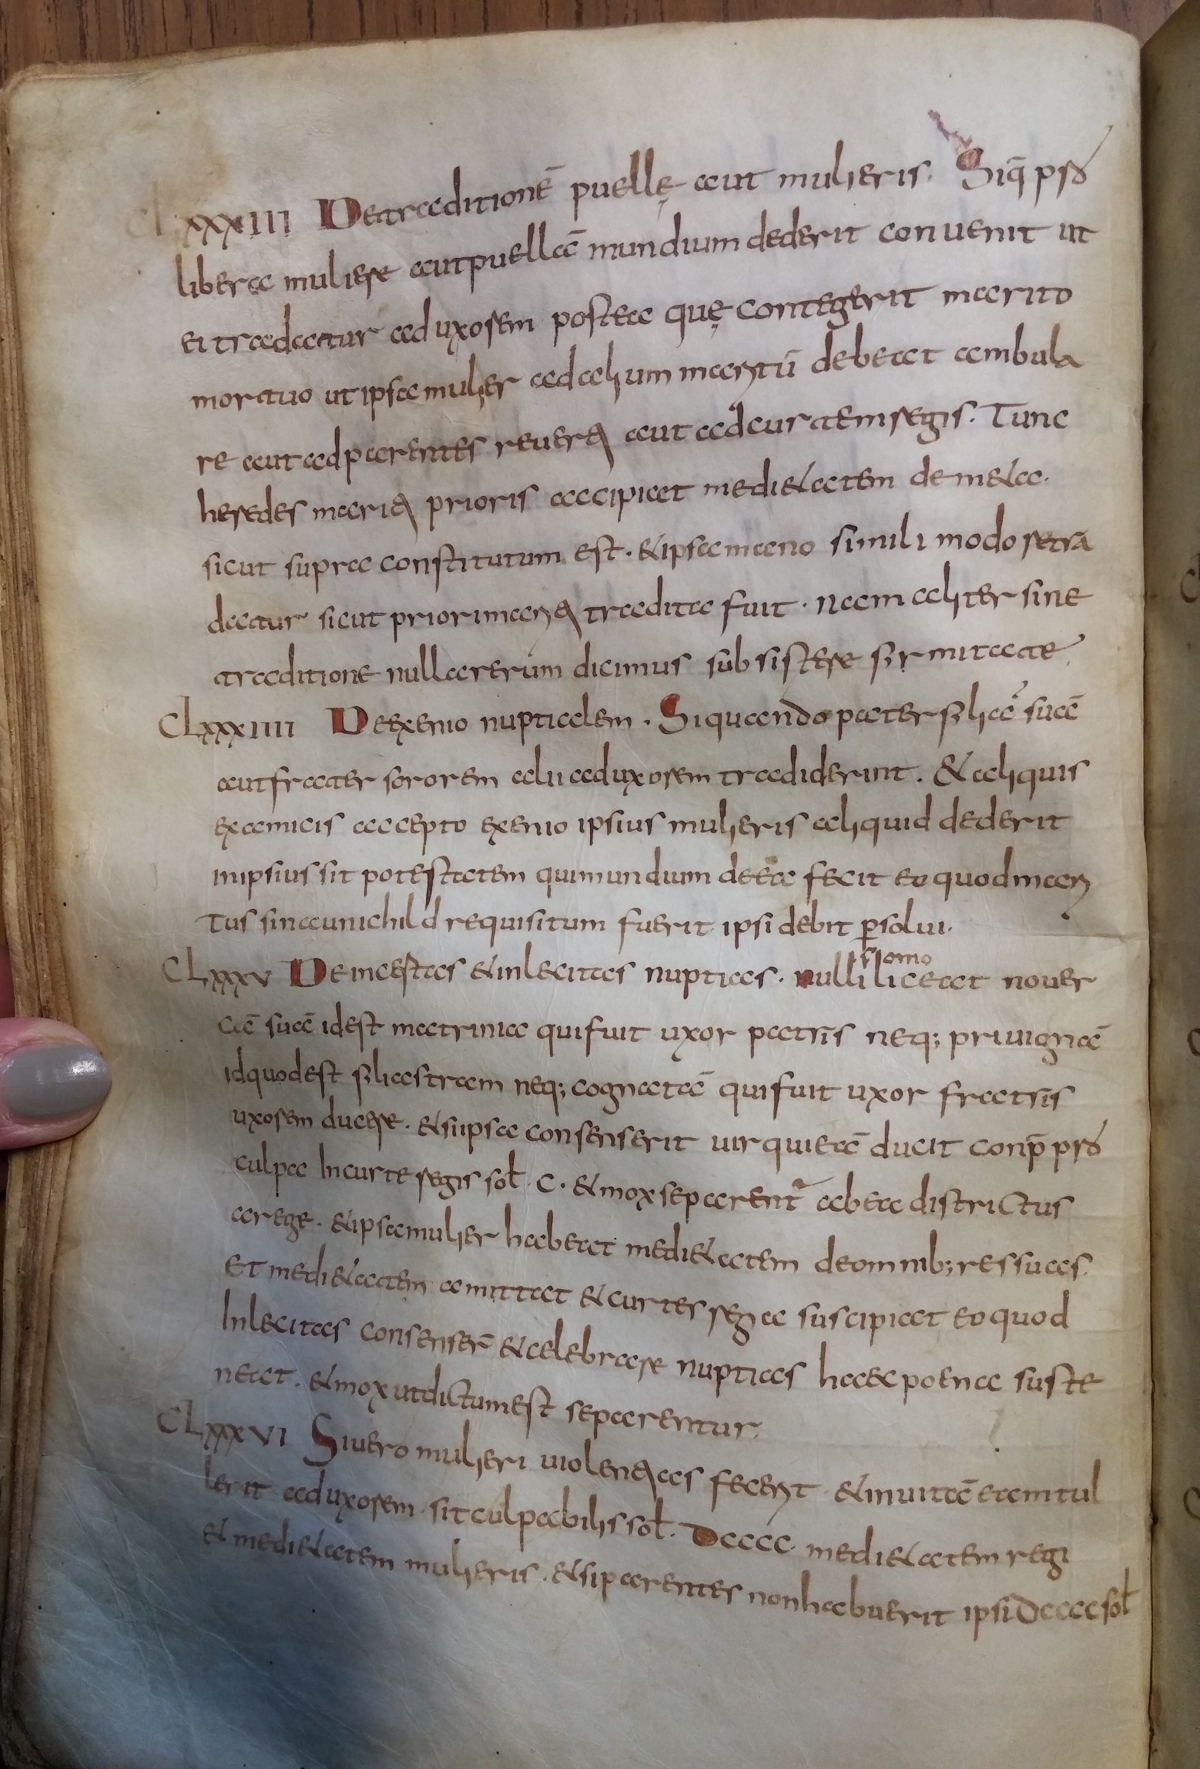 CLXXXIII Detraditionē puellę aut mulieris. Siq̄ psō
libera muliere autpuellā mundium dederit convenit ut
ei tradatur ad uxorem postea quę contegerit marito
mortuo ut ipsa mulier ad alium maritū debeat ambula
re aut ad parentes reverti aut ad curtem regis. Tunc
heredes mariti prioris accipiat medietatem de meta.
sicut supra constitutum est. & ipsa marito simili modo retra
datur sicut priori marito tradita fuit. nam aliter sine
traditione nulla rerum dicimus subsistere firmitate.
CLXXXIIII Deexenio nuptialem. Siquando pater filiā suā
aut frater sororem alii ad uxorem tradiderint. & aliquis
ex amicis accepto exenio ipsius mulieris aliquid dederit
in ipsius sit potestatem qui mundium de ea fecit eo quod mari
tus si launichild requisitum fuerit ipsi debit p̄solui.
CLXXXV De incestas & inlecitas nuptias. nulli omo liceat nouer
cā suā idest matrinia qui fuit uxor patris neq; priuignā
id quod est filiastram neq; cognatā qui fuit uxor fratris
uxorem ducere. & si ipsa consenserit uir qui eā ducit conp̄ psō
culpa In curte regis sol. C. & mox separent' ab ea districtus
a rege. & ipsa mulier habeat medietatem de omnib; res suas
Et medietatem amittat & curtes regea suscipiat eo quod
Inlecitas consenser̄ & celebrare nuptias haec poena suste
neat. & mox ut dictum est separentur.
CLXXXVI Si uero mulieri uiolentias fecerit & inuitā eam tul
lerit ad uxorem. sit culpabilis sol. DCCCC. medietatem regi
& medietatem mulieris. & si parentes non habuerit ipsi DCCCC sol